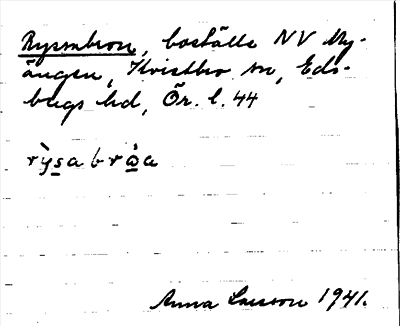 Ryssabron, boställe NV Ny-
ängen, Kvistbro sn, Eds-
bergs hd, Ör. l. 44
rỳsabrò̱a
Anna Larsson 1941.